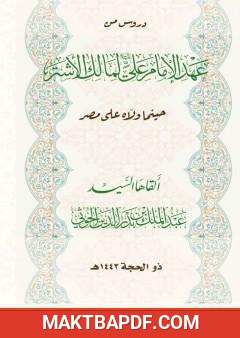 دروس من
عهد الإمام علي لمالك الأشتر
حينما ولاه على مصر
ألقاها السيد
عبد الملك بن بدر الدين الحوثي
ذو الحجة ١٤٤٣هـ
MAKTBAPDF.COM